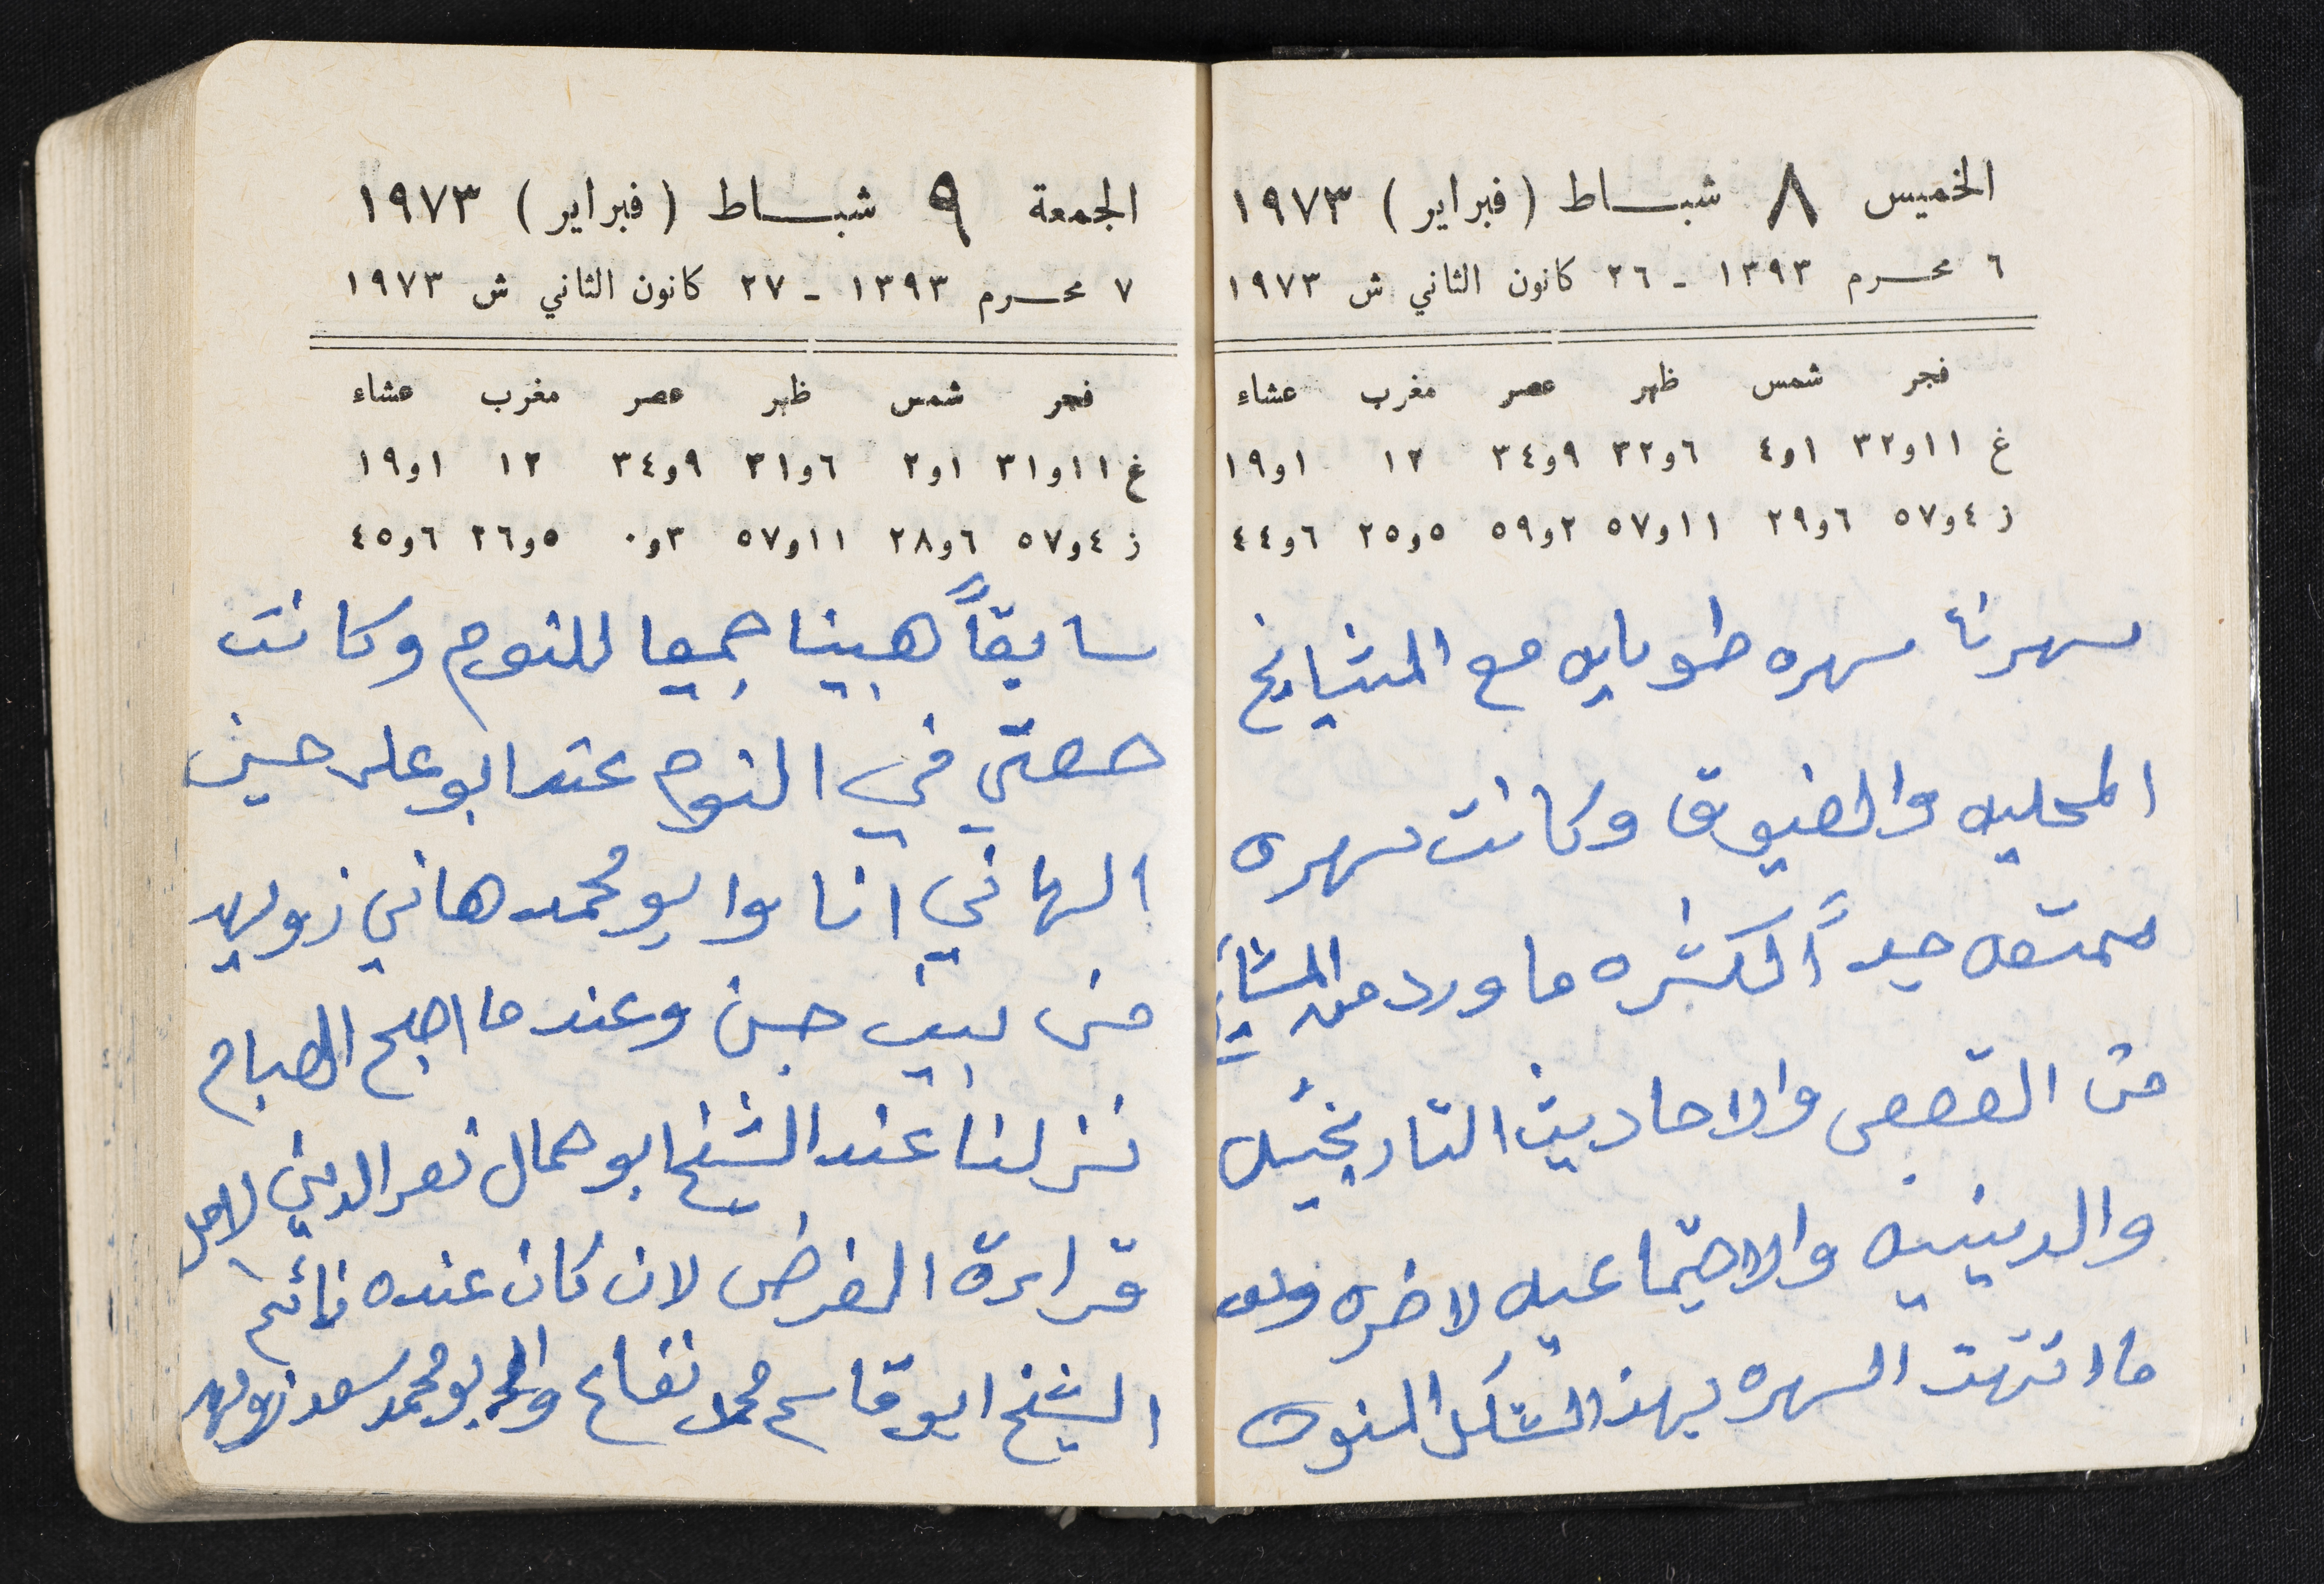 الخميس ٨ شباط (فبراير) ١٩٧٣
٦ محرم ١٣٩٣ - ٢٦ كانون الثاني ش ١٩٧٣
فجر شمس ظهر عصر مغرب عشاء
غ ١١و٣٢ ١و٤ ٦و٣٢ ٩و٣٤ ١٢ ١و١٩
ز ٤و٥٧ ٦و٢٩ ١١و٥٧ ٢و٥٩ ٥و٢٥ ٦و٤٤
سهرنا سهره طويله مع المشايخ
المحليه والضيوف وكانت سهره
ممتعه جداً لكثره ما ورد من المشايخ
من القصص والاحاديث التاريخيه
والدينيه والاجتماعيه لاخره وبعد
ما انتهت السهره بهذا الشكل المنوه
الجمعة ٩ شباط (فبراير) ١٩٧٣
٧ محرم ١٣٩٣ - ٢٧ كانون الثاني ش ١٩٧٣
فجر شمس ظهر عصر مغرب عشاء
غ ١١و٣١ ١و٢ ٦و٣١ ٩و٣٤ ١٢ ١و١٩
ز ٤و٥٧ ٦و٢٨ ١١و٥٧ ٣و٠ ٥و٢٦ ٦و٤٥
سابقاً هبينا جميعا للنوم وكانت
حصتي في النوم عند ابو علي حسين
الهاني انا وابو محمد هاني زويهد
من بيت جن وعندما اصبح الصباح
نزلنا عند الشيخ ابو جمال نصر الدين لاجل
قراءة الفرض لان كان عنده نائم
الشيخ ابو قاسم محمد نفاع وابو محمد سعد زويهد